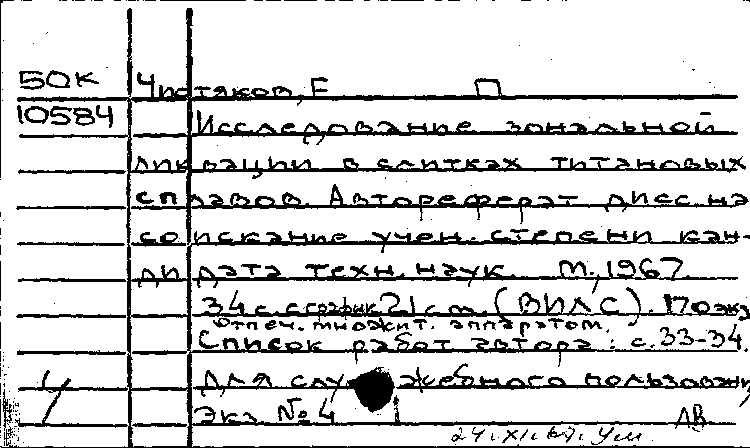 50к Чистяков, Е П
10584 Исследование зональной
ликвации в слитках титановых
сплавов. Автореферат дисс. на
соискание учен. степени кан-
дидата техн. наук. М., 1967.
34 с. с график 21 см. (ВИЛС). 170 экз
Отпеч. множит. аппаратом.
Список работ автора: с. 33-34.
Для служебного пользовани
Экз № 4
24.XI.67. Ум. АВ